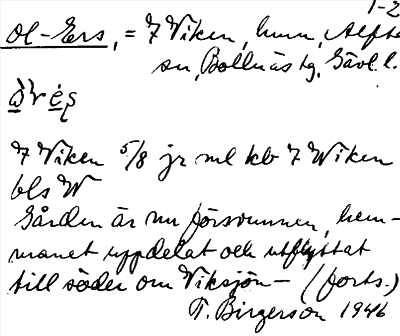 1-2
Ol-Ers, = 7 Viken, hmn, Alfta
sn, Bollnäs tg, Gävl. l.
7 Viken 5/8 jr ml kb 7 Wiken
bls W
Gården är nu försvunnen, hem-
manet uppdelat och utflyttat
till söder om Viksjön – (forts.)
T. Birgerson 1946